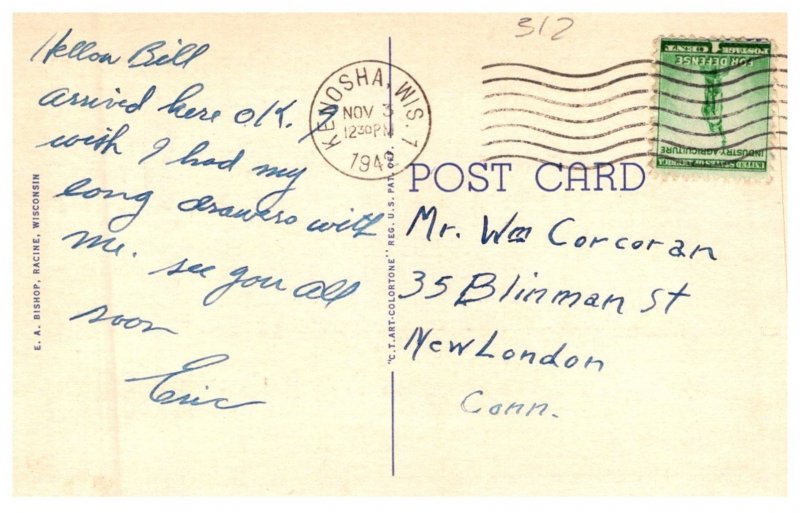 312
Hellow Bill
arrived here O.K. I
wish I had my
long drawers with
me. see you all
soon
Eric
E. A. BISHOP, RACINE, WISCONSIN
"C.T. ART-COLORTONE" REG. U.S. PAT. OFF.
KENOSHA, WIS. 1
NOV 3
12 30 PM
194
1 CENT 1
POSTAGE
FOR DEFENSE
INDUSTRY AGRICULTURE
UNITED STATES OF AMERICA
POST CARD
Mr. Wm Corcoran
35 Blinman St
New London
Conn.